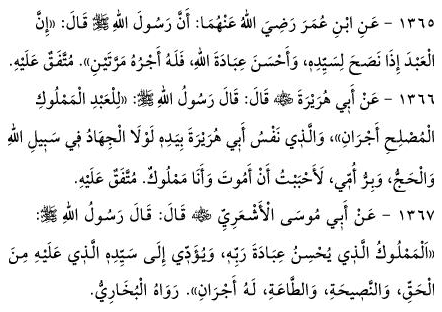 ١٣٦٥ - عَنِ ابْنِ عُمَرَ رَضِيَ اللهُ عَنْهُمَا: أَنَّ رَسُولَ اللهِ ﷺ قَالَ: «إِنَّ
الْعَبْدَ إِذَا نَصَحَ لِسَيِّدِهِ، وَأَحْسَنَ عِبَادَةَ اللهِ، فَلَهُ أَجْرُهُ مَرَّتَيْنِ». مُتَّفَقٌ عَلَيْهِ.
١٣٦٦ - عَنْ أَبِي هُرَيْرَةَ ﵁ قَالَ: قَالَ رَسُولُ اللهِ ﷺ: «لِلْعَبْدِ الْمَمْلُوكِ
الْمُصْلِحِ أَجْرَانِ»، وَالَّذِي نَفْسُ أَبِي هُرَيْرَةَ بِيَدِهِ لَوْلَا الْجِهَادُ فِي سَبِيلِ اللهِ
وَالْحَجُّ، وَبِرُّ أُمِّي، لَأَحْبَبْتُ أَنْ أَمُوتَ وَأَنَا مَمْلُوكٌ. مُتَّفَقٌ عَلَيْهِ.
١٣٦٧ - عَنْ أَبِي مُوسَى الْأَشْعَرِيِّ ﵁ قَالَ: قَالَ رَسُولُ اللهِ ﷺ:
«اَلْمَمْلُوكُ الَّذِي يُحْسِنُ عِبَادَةَ رَبِّهِ، وَيُؤَدِّي إِلَى سَيِّدِهِ الَّذِي عَلَيْهِ مِنَ
الْحَقِّ، وَالنَّصِيحَةِ، وَالطَّاعَةِ، لَهُ أَجْرَانِ». رَوَاهُ الْبُخَارِيُّ.